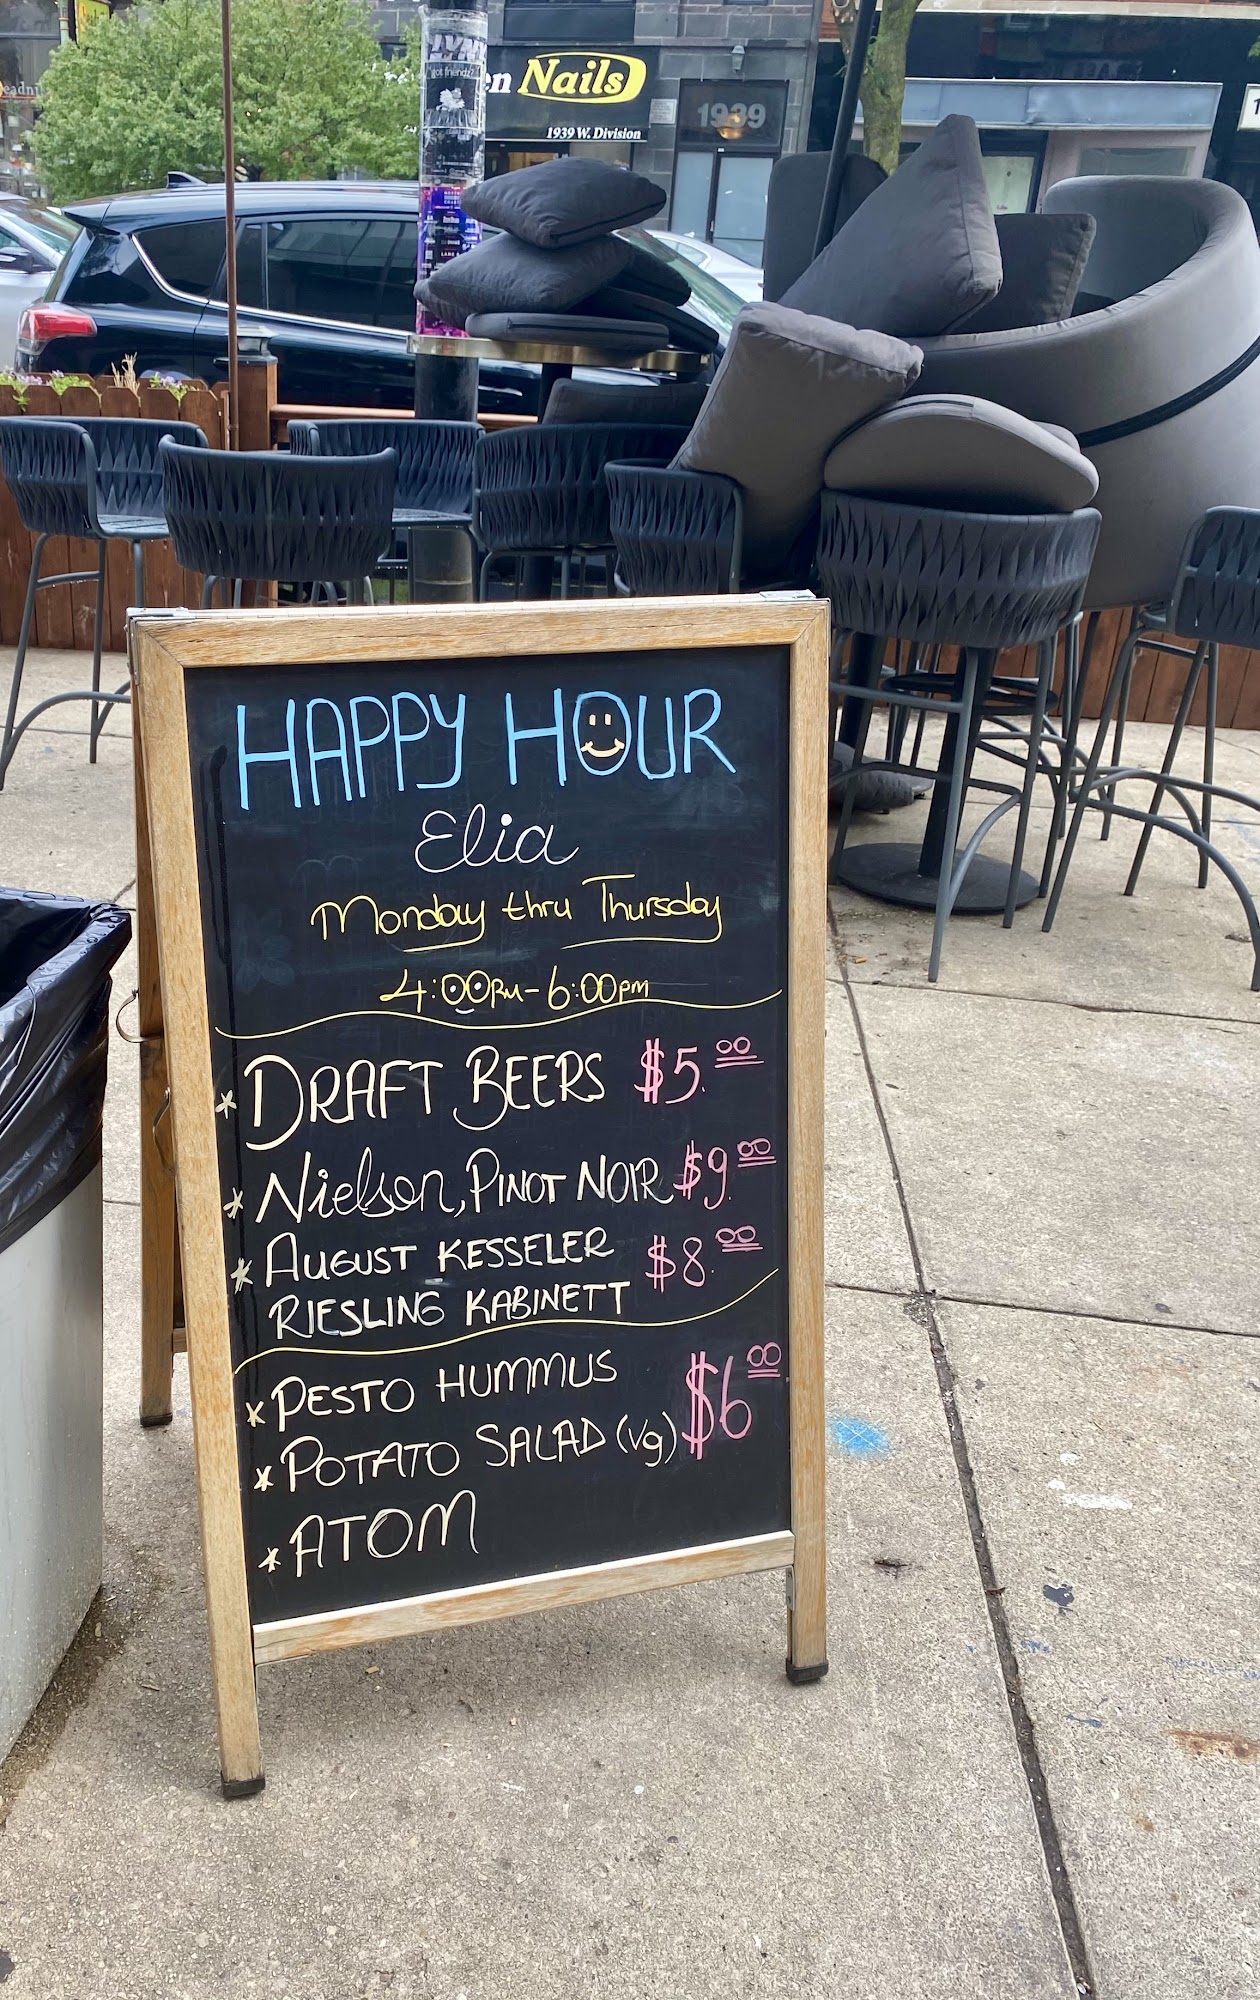 en Nails
1939 W. Division
1939
got friends?
HAPPY HOUR
Elia
Monday thru Thursday
4:00PM-6:00pm
* DRAFT BEERS $5.00
* Nielson, PINOT NOIR $9.00
* AUGUST KESSELER
RIESLING KABINETT $8.00
* PESTO HUMMUS
* POTATO SALAD (vg) $6.00
* ATOM